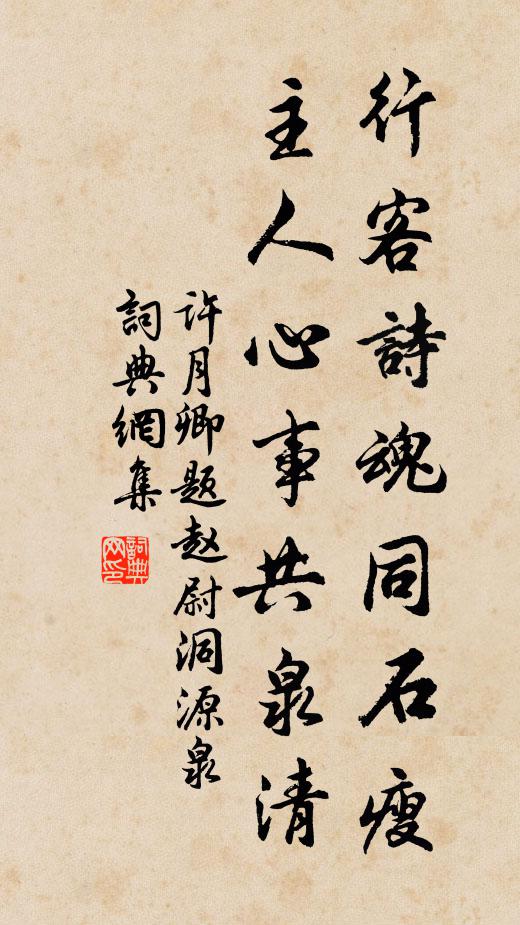 行客詩魂同石瘦
主人心事共泉清
许月卿题赵尉洞源泉
詞典網集
詞典网印